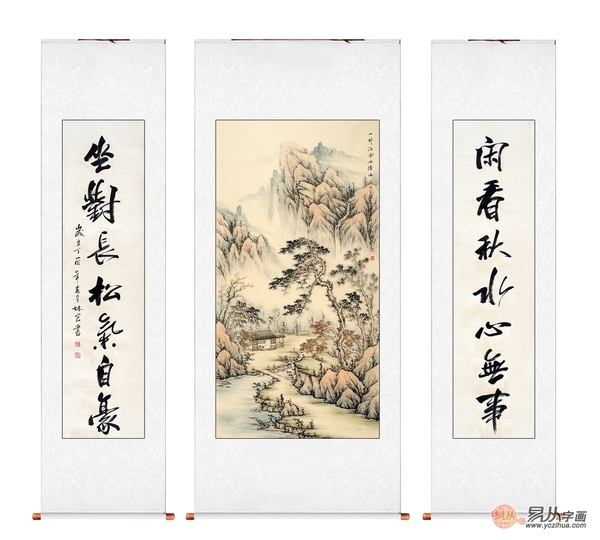 闲看秋水心無事
坐對長松氣自豪
丁酉年 書
易从字画
www.yczihua.com